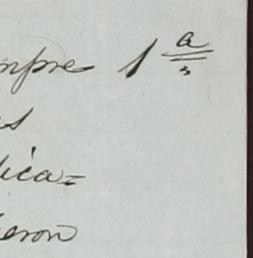 mpre 1 a/3
s
lica=
ieron